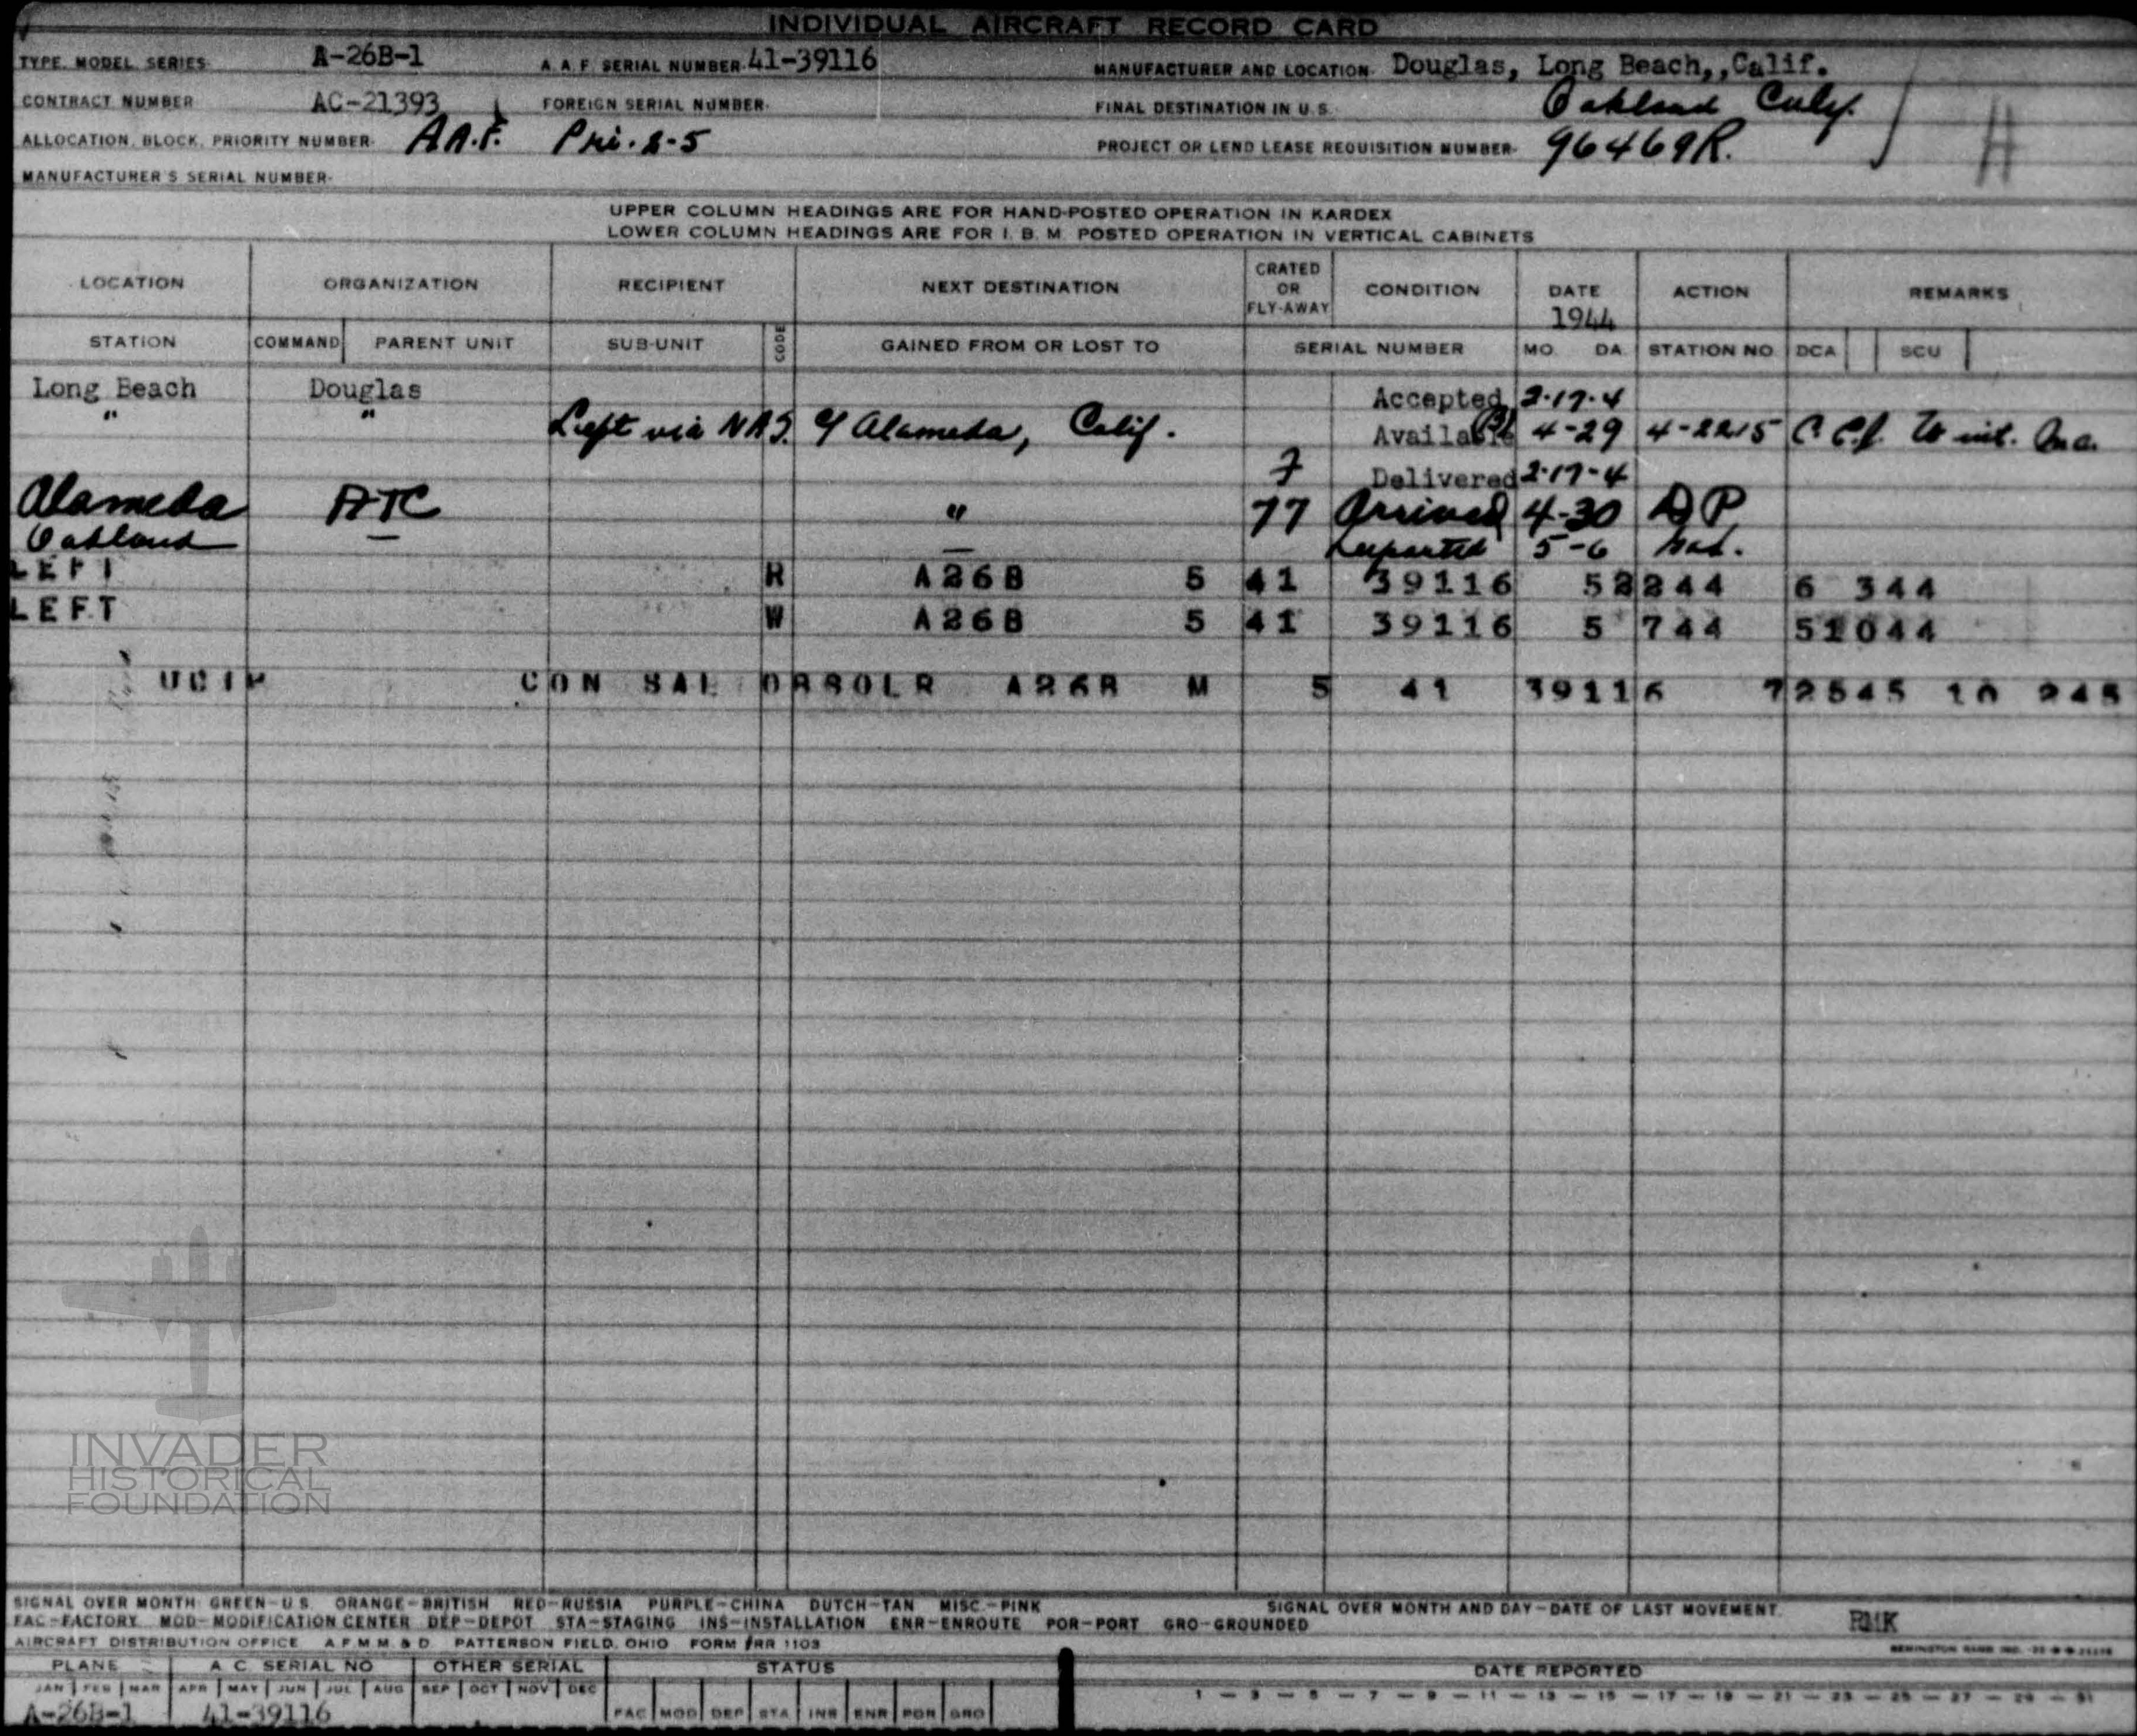 INDIVIDUAL AIRCRAFT RECORD CARD
TYPE, MODEL, SERIES- A-26B-1 A. A. F. SERIAL NUMBER- 41-39116 MANUFACTURER AND LOCATION- Douglas, Long Beach,,Calif.
CONTRACT NUMBER AC-21393 FOREIGN SERIAL NUMBER- FINAL DESTINATION IN U.S. Oakland Calif.
ALLOCATION, BLOCK, PRIORITY NUMBER- A.A.F. Pri. 2-5 PROJECT OR LEND LEASE REQUISITION NUMBER- 96469R.
MANUFACTURER'S SERIAL NUMBER-
UPPER COLUMN HEADINGS ARE FOR HAND-POSTED OPERATION IN KARDEX
LOWER COLUMN HEADINGS ARE FOR I. B. M. POSTED OPERATION IN VERTICAL CABINETS
LOCATION ORGANIZATION RECIPIENT NEXT DESTINATION CRATED OR FLY-AWAY CONDITION DATE 1944 ACTION REMARKS
STATION COMMAND PARENT UNIT SUB-UNIT CODE GAINED FROM OR LOST TO SERIAL NUMBER MO. DA. STATION NO. DCA SCU
Long Beach Douglas Accepted 2-17-4
" " Left via NAS. Alameda, Calif. Available 4-29 4-2215
7 Delivered 2-17-4
Alameda ATC " 77 Arrived 4-30 DP
Oakland — — Departed 5-6
LEFT R A26B 5 41 39116 52244 6 344
LEFT W A26B 5 41 39116 5 744 51044
CON SAL A26B M 5 41 39116 72545 10 245
INVADER
HISTORICAL
FOUNDATION
SIGNAL OVER MONTH GREEN-U.S. ORANGE-BRITISH RED-RUSSIA PURPLE-CHINA DUTCH-TAN MISC.-PINK SIGNAL OVER MONTH AND DAY-DATE OF LAST MOVEMENT
FAC-FACTORY MOD-MODIFICATION CENTER DEP-DEPOT STA-STAGING INS-INSTALLATION ENR-ENROUTE POR-PORT GRO-GROUNDED RMK
AIRCRAFT DISTRIBUTION OFFICE A.F.M.M. & D. PATTERSON FIELD, OHIO FORM #RR 1103
PLANE A C SERIAL NO OTHER SERIAL STATUS DATE REPORTED
JAN FEB MAR APR MAY JUN JUL AUG SEP OCT NOV DEC 1 — 3 — 5 — 7 — 9 — 11 — 13 — 15 — 17 — 19 — 21 — 23 — 25 — 27 — 29 — 31
A-26B-1 41-39116 FAC MOD DEP STA INS ENR POR GRO